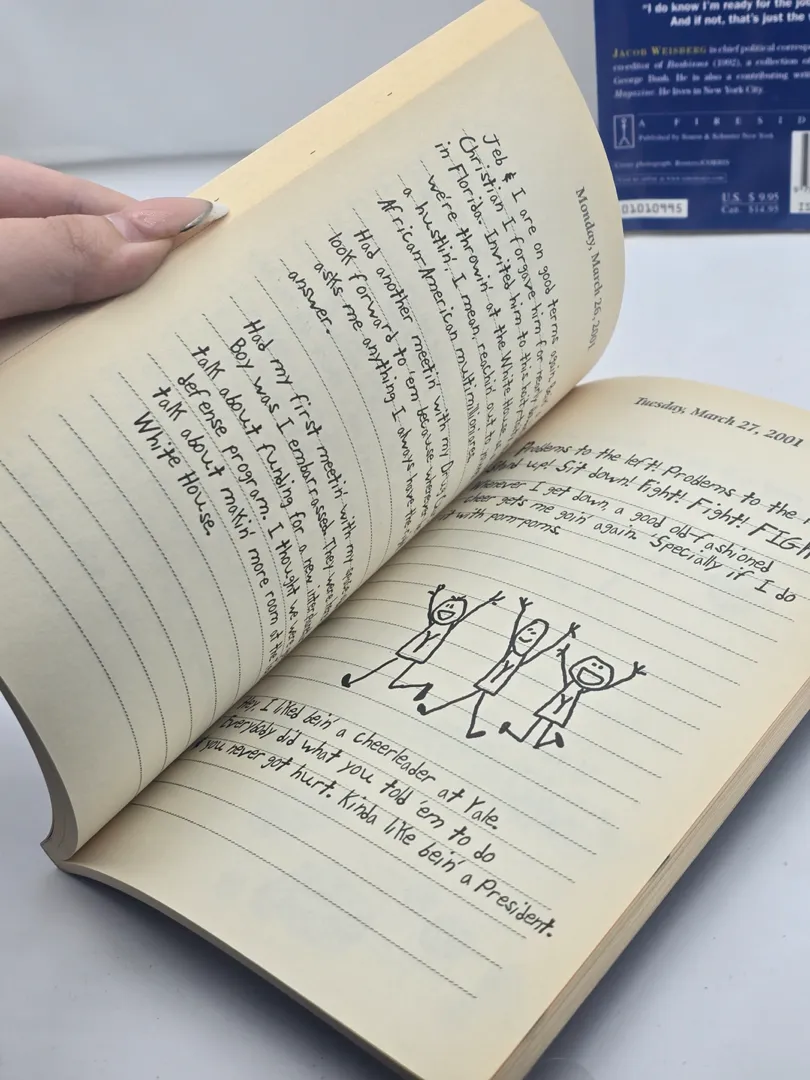 "I do know I'm ready for the
And if not, that's just the
JACOB WEISBERG is chief political
co-editor of Bushisms (1992), a collection of
George Bush. He is also a contributing
Magazine. He lives in New York City.
A FIRESID
Published by Simon & Schuster New York
Cover photograph: Reuters/CORBIS
01010995
U.S. $9.95
Can. $14.95
Monday, March 26, 2001
Jeb & I are on good terms again.
Christian I forgave him for nearly
in Florida. Invited him to this
we're throwin' at the White House
a hustlin', I mean, reachin' out to
African-American multimillionaires.
Had another meetin' with my
look forward to 'em because whenever
asks me anything I always have the
answer.
Had my first meetin' with my
Boy was I embarrassed. They were
talk about funding for a new
defense program. I thought we were
talk about makin' more room at the
White House.
Tuesday, March 27, 2001
Problems to the left! Problems to the
up! Sit down! Fight! Fight! FIGH
Whenever I get down, a good old-fashioned
cheer gets me goin' again. 'Specially if I do
it with pom-poms.
Hey, I liked bein' a cheerleader at Yale.
Everybody did what you told 'em to do
you never got hurt. Kinda like bein' a President.